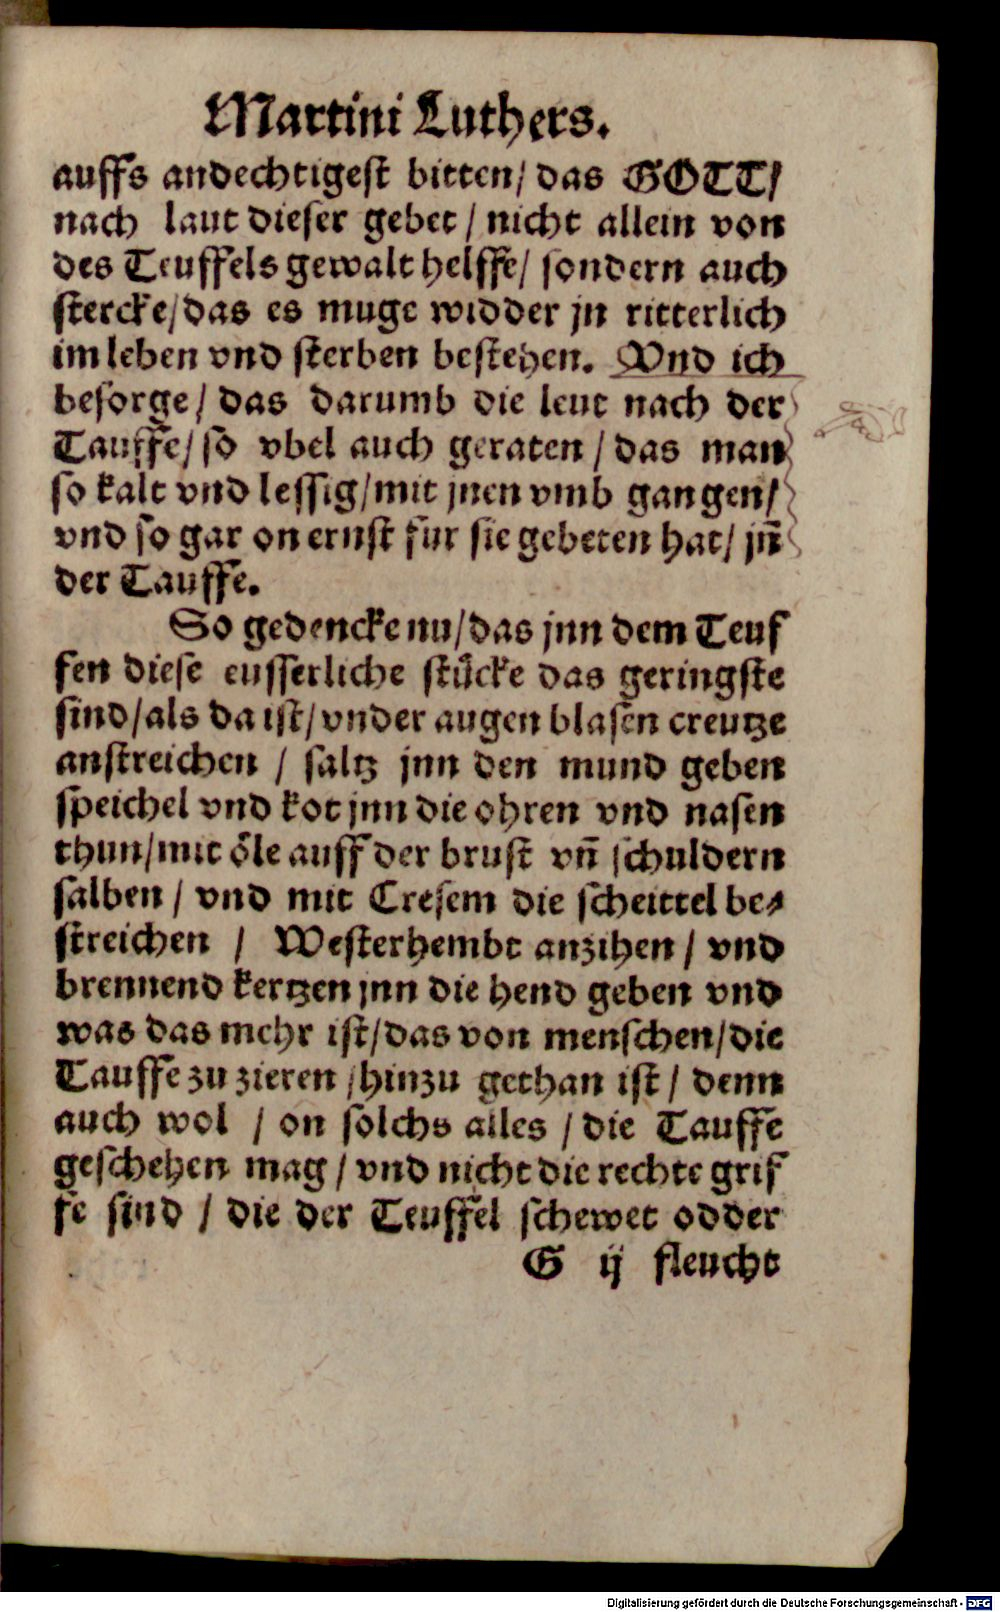 Martini Luthers.
auffs andechtigest bitten/ das GOTT/
nach laut dieser gebet / nicht allein von
des Teuffels gewalt helffe/ sondern auch
stercke/das es muge widder jn ritterlich
im leben vnd sterben bestehen. Vnd ich
besorge/ das darumb die leut nach der
Tauffe/ so vbel auch geraten / das man
so kalt vnd lessig/mit jnen vmb gangen/
vnd so gar on ernst fur sie gebeten hat/ jñ
der Tauffe.
So gedencke nu/das jnn dem Teuf
fen diese eusserliche stücke das geringste
sind/als da ist/vnder augen blasen creutze
anstreichen / saltz jnn den mund geben
speichel vnd kot jnn die ohren vnd nasen
thun/mit öle auff der brust vñ schuldern
salben / vnd mit Cresem die scheittel be⸗
streichen / Westerhembt anzihen / vnd
brennend kertzen jnn die hend geben vnd
was das mehr ist/das von menschen/die
Tauffe zu zieren /hinzu gethan ist / denn
auch wol / on solchs alles / die Tauffe
geschehen mag / vnd nicht die rechte grif
fe sind / die der Teuffel schewet odder
G ij fleucht
Digitalisierung gefördert durch die Deutsche Forschungsgemeinschaft - DFG